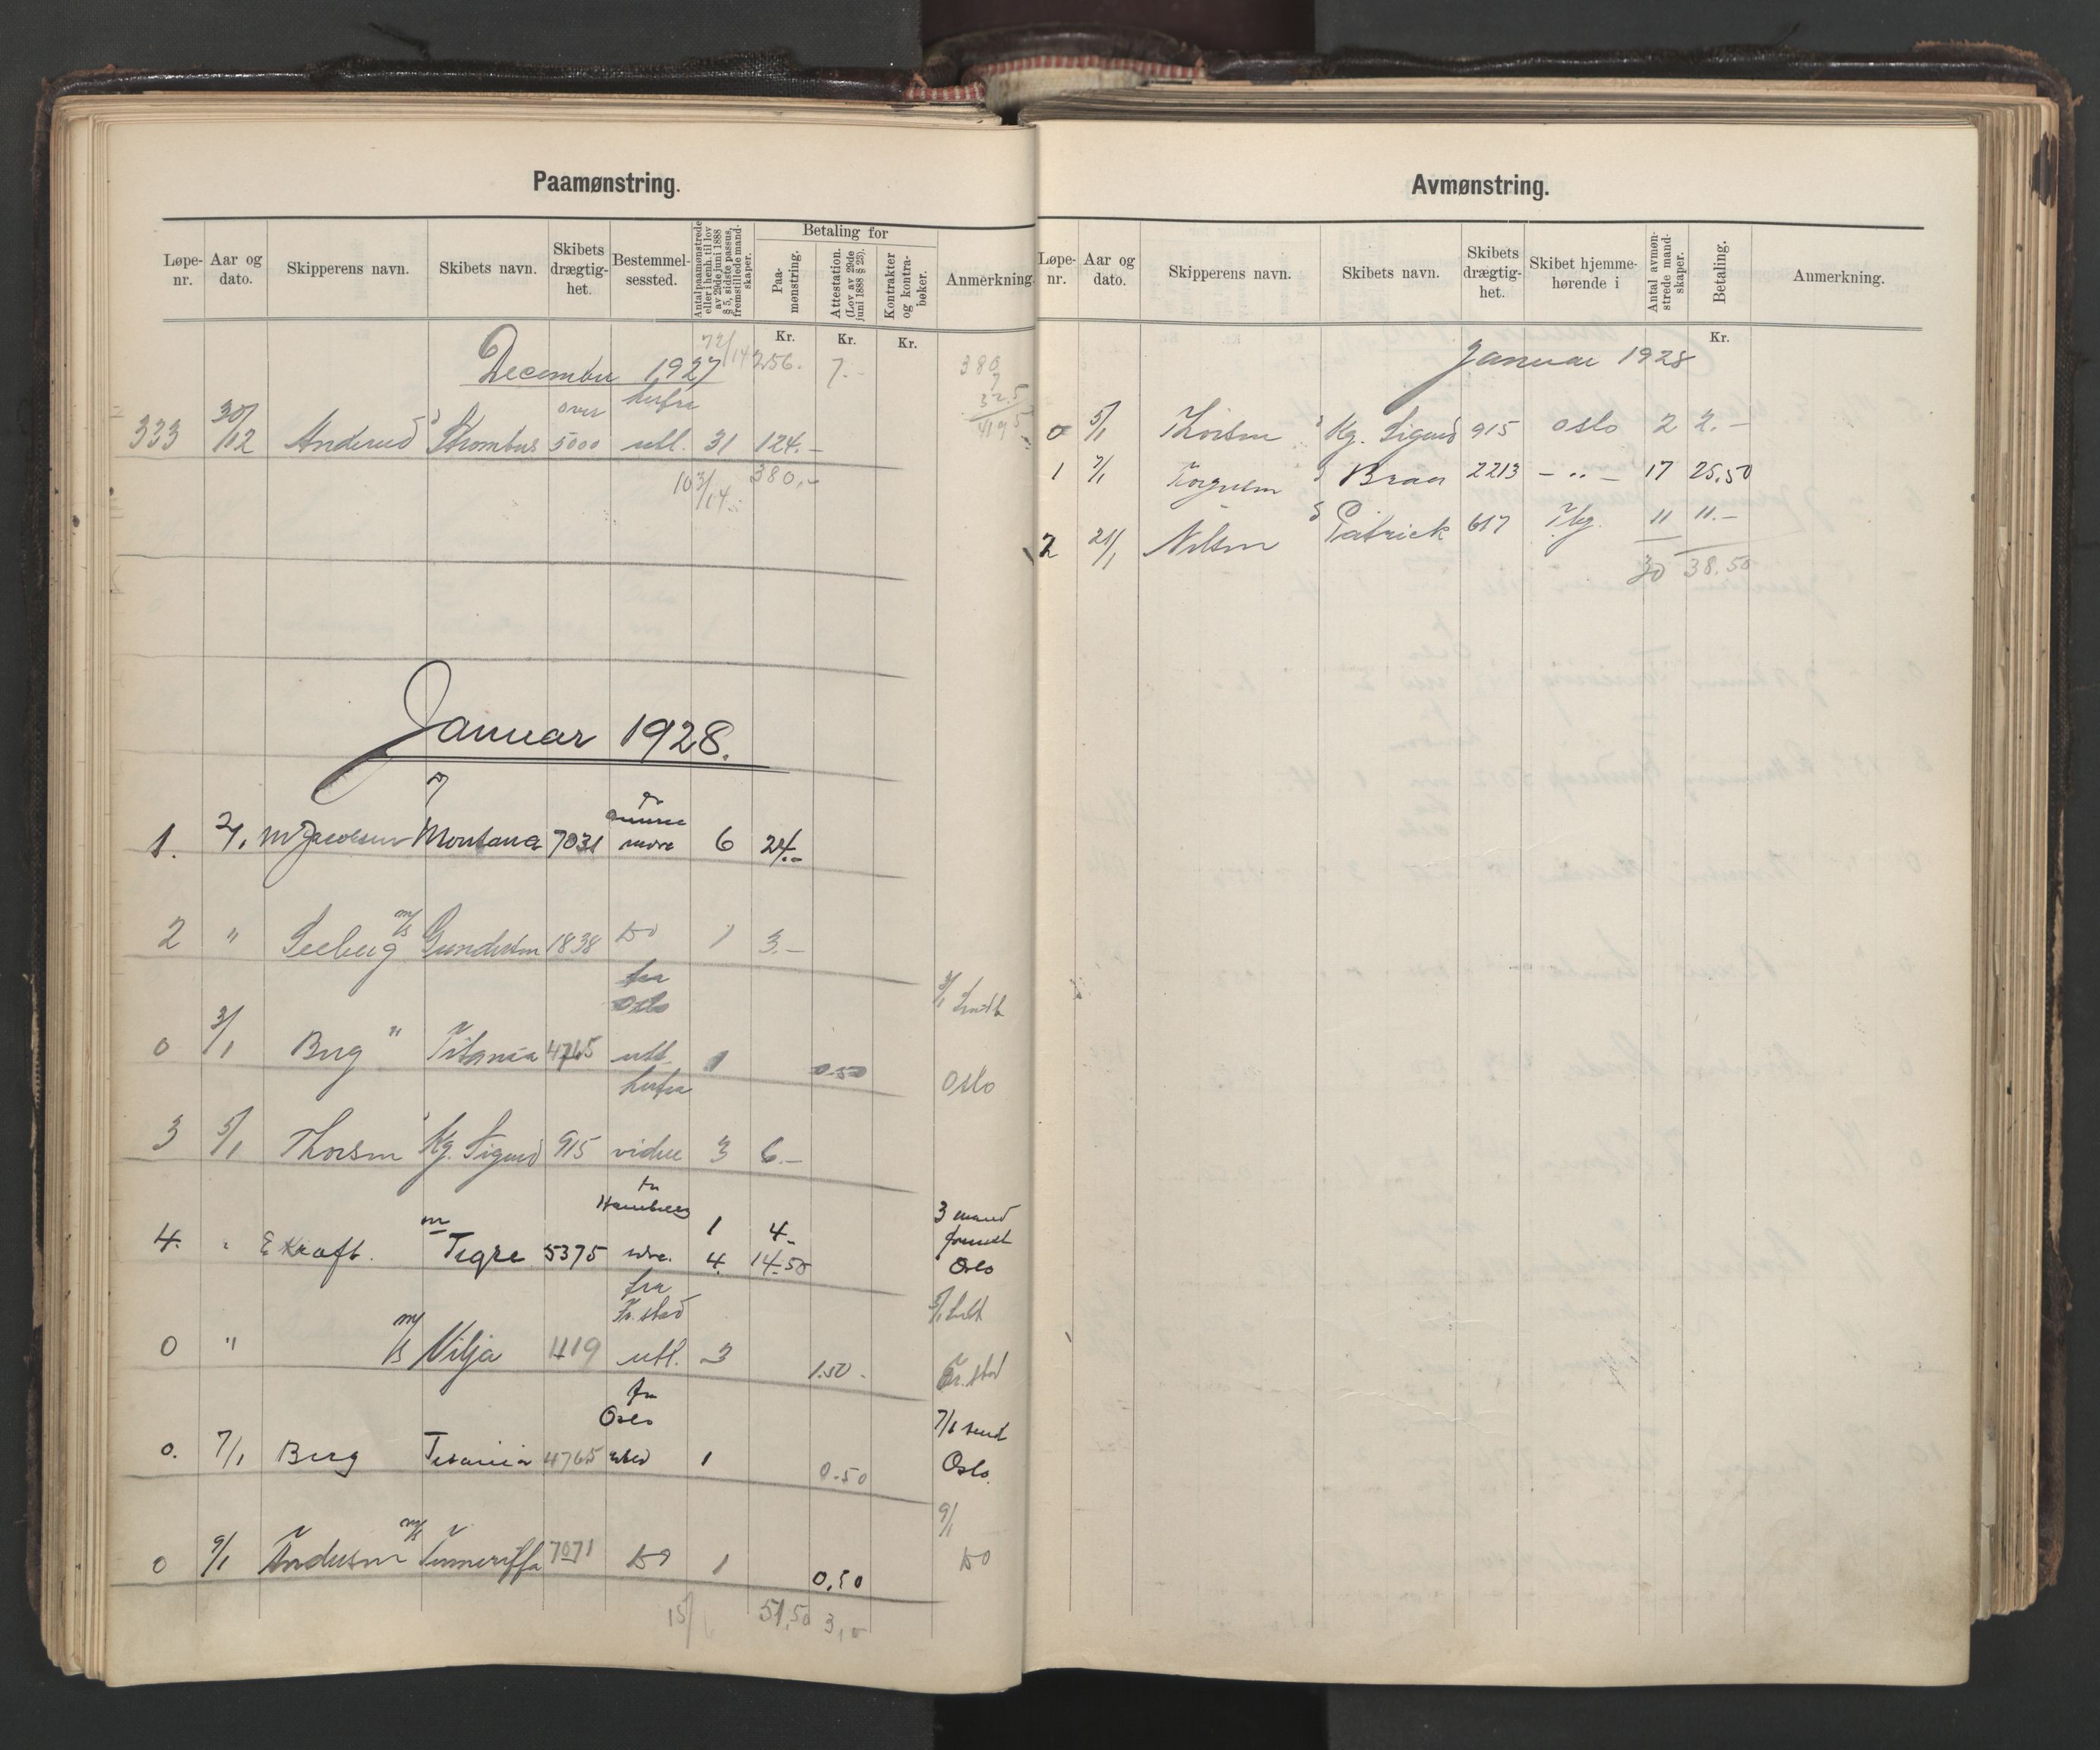 Paamønstring.
Løpe-nr. Aar og dato. Skipperens navn. Skibets navn. Skibets drægtig-het. Bestemmel-sessted. Antal paamønstrede eller i henh. til lov av 29de juni 1888 § 5, sidste passus, fremstillede mand-skaper. Betaling for Paa-mønstring. Attestation. (Lov av 29de juni 1888 § 23). Kontrakter og kontra-bøker. Anmerkning.
Kr. Kr. Kr.
72/14 256. 7.- 380
December 1927 7
herfra 32.5
over 419 5
333 30/12 Anderud s Strombus 5000 utl. 31 124.-
103/14 380.-
Januar 1928.
1. 2/1 M Jacobsen Montana 7031 6 24.-
2 " Seeberg m/s Gundersen 1838 Do 1 3.-
fra Oslo 3/1 Sendt
0 3/1 Berg " Titania 4765 utl. 1 0.50 Oslo
herfra
3 5/1 Thorsen s Kg. Sigurd 915 videre 3 6.-
Hamburg 1 4.- 3 mand
4. " E Kraft. m Tigre 5375 4. 14.50 Oslo
fra Fr.stad 5/1
0 " m/s Vilja 4119 utl. 3 1.50 Fr.stad
fra Oslo 7/1 send
0. 7/1 Berg Titania 4765 1 0.50 Oslo.
9/1
0 9/1 Andersen m/s Tenneriffa 7071 Do 1 0,50 Do
15/6 51,50 3,0
Avmønstring.
Løpe-nr. Aar og dato. Skipperens navn. Skibets navn. Skibets drægtig-het. Skibet hjemme-hørende i Antal avmøn-strede mand-skaper. Betaling. Anmerkning.
Kr.
Januar 1928
0 5/1 Thorsen s Kg. Sigurd 915 Oslo 2 2.-
1 7/1 Torgersen s Braa 2213 - " - 17 25.50
2 21/1 Nilsen s Patrick 617 Tbg. 11 11.-
30 38.50